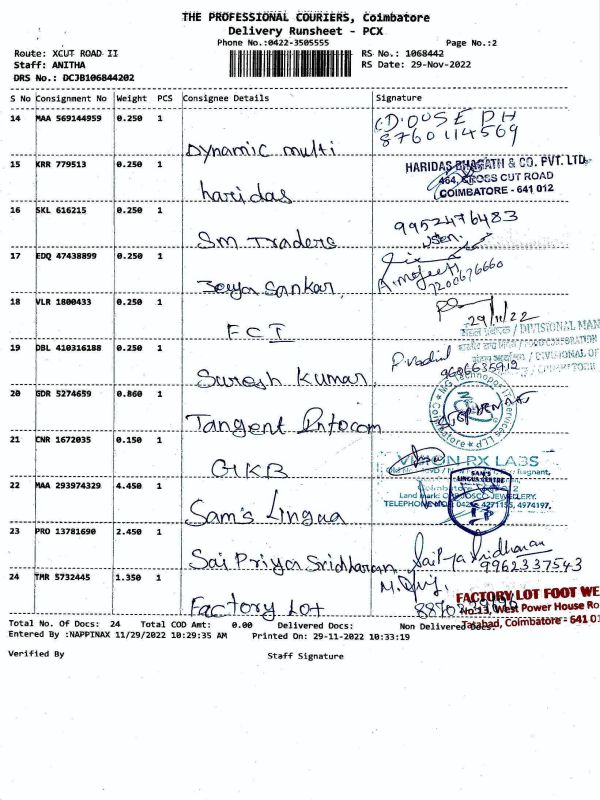 THE PROFESSIONAL COURIERS, Coimbatore
Delivery Runsheet - PCX
Phone No.:0422-3505555 Page No.:2
Route: XCUT ROAD II RS No.: 1068442
Staff: ANITHA RS Date: 29-Nov-2022
DRS No.: DCJB106844202
S No Consignment No Weight PCS Consignee Details Signature
14 MAA 569144959 0.250 1
8760114569
Dynamic multi
15 KRR 779513 0.250 1 HARIDAS BHAGATH & CO. PVT. LTD.
464, CROSS CUT ROAD
COIMBATORE - 641 012
haridas
16 SKL 616215 0.250 1 9952476483
Sm Traders
17 EDQ 47438899 0.250 1
7200676660
Jeya Sankar
18 VLR 1800433 0.250 1
29/11/22
FCI / DIVISIONAL MAN
19 DBL 410316188 0.250 1 / FOOD CORPORATION
/ DIVISIONAL OF
9606635912
Suresh Kumar
20 GDR 5274659 0.860 1
Tangent Infocom
21 CNR 1672035 0.150 1
VISION RX LABS
GKB
22 MAA 293974329 4.450 1 SAM'S
LINGUS CENTRE
Land mark: JEWELLERY.
TELEPHONE 4271155, 4974197,
Sam's Lingua
23 PRO 13781690 2.450 1
Sai Priya Sridharan 9962337543
24 TMR 5732445 1.350 1
FACTORY LOT FOOT WE
No:13, West Power House Ro
Factory Lot
Tatabad, Coimbatore - 641 01
Total No. Of Docs: 24 Total COD Amt: 0.00 Delivered Docs: Non Delivered Docs:
Entered By :NAPPINAX 11/29/2022 10:29:35 AM Printed On: 29-11-2022 10:33:19
Verified By Staff Signature